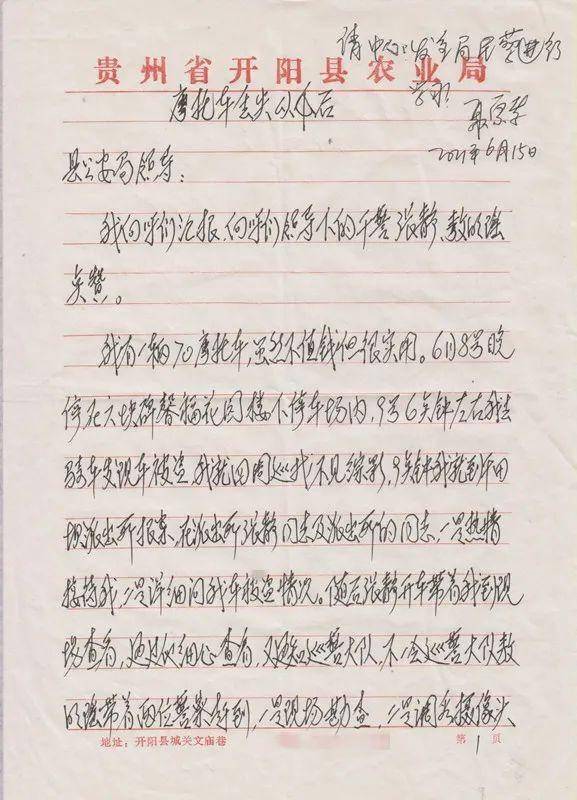 请中心发全局民警
贵州省开阳县农业局
学习
摩托车丢失以后
2021年6月15日
县公安局领导:
我向你们汇报,向你们领导下的干警张静、敖明强
点赞。
我有一辆70摩托车,虽然不值钱但很实用。6月8号晚
停在六块碑馨福花园楼下停车场内,9号6点钟左右我去
骑车发现车被盗,我就四周巡找不见综影,9点钟我就到
坝派出所报案,在派出所张静同志及派出所的同志,一是热情
接待我,二是详细问我车被盗情况。随后张静开车带着我到现
场查看,通过细心查看,又通知巡警大队,不一会巡警大队敖
明强带着两位警察赶到,一是现场勘查,二是调看摄像头
地址:开阳县城关文庙巷
第1页